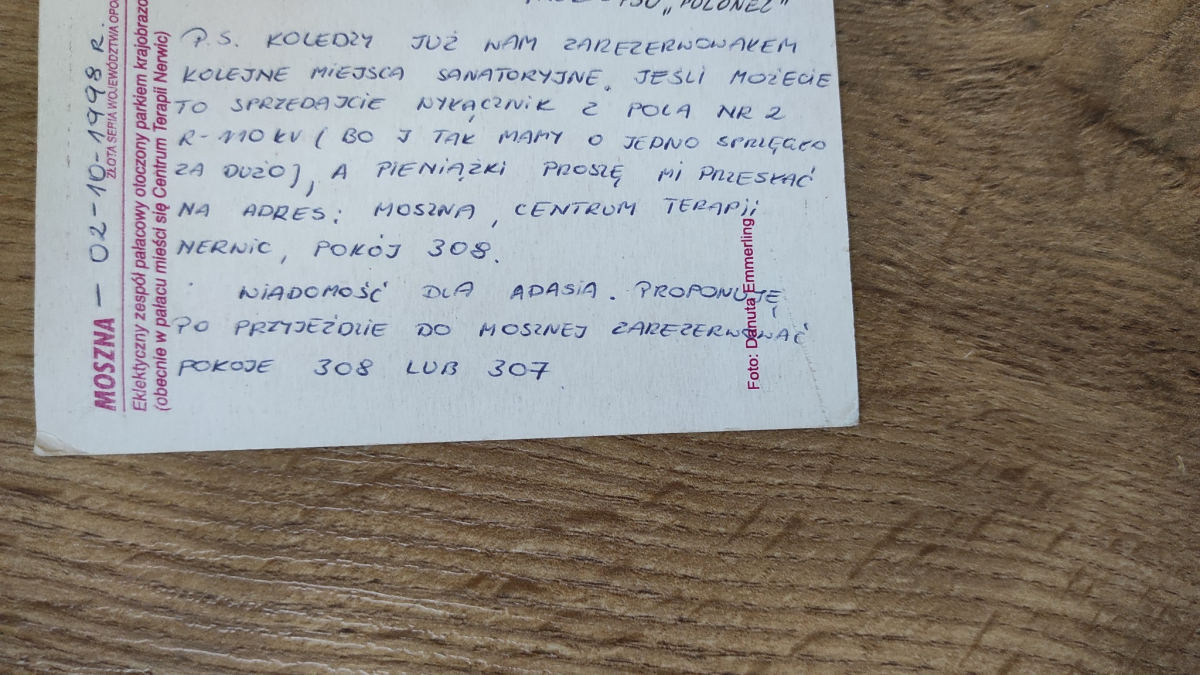 „POLONEZ"
P.S. KOLEDZY JUŻ WAM ZAREZERWOWAŁEM
KOLEJNE MIEJSCA SANATORYJNE. JEŚLI MOŻECIE
TO SPRZEDAJCIE WYŁĄCZNIK Z POLA NR 2
R-110 KV (BO I TAK MAMY O JEDNO SPRZĘGŁO
ZA DUŻO), A PIENIĄŻKI PROSZĘ MI PRZESŁAĆ
NA ADRES: MOSZNA, CENTRUM TERAPII
NERWIC, POKÓJ 308.
WIADOMOŚĆ DLA ADASIA. PROPONUJĘ
PO PRZYJEŹDZIE DO MOSZNEJ ZAREZERWOWAĆ
POKOJE 308 LUB 307
MOSZNA — 02-10-1998 R.
ZŁOTA SERIA WOJEWÓDZTWA OPO
Eklektyczny zespół pałacowy otoczony parkiem krajobrazo
(obecnie w pałacu mieści się Centrum Terapii Nerwic)
Foto: Danuta Emmerling